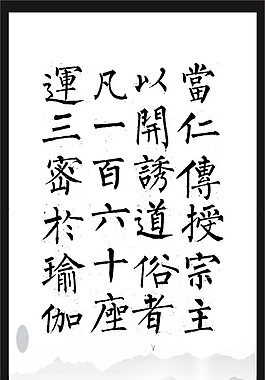 當仁傳授宗主
以開誘道俗者
凡一百六十座
運三密於瑜伽